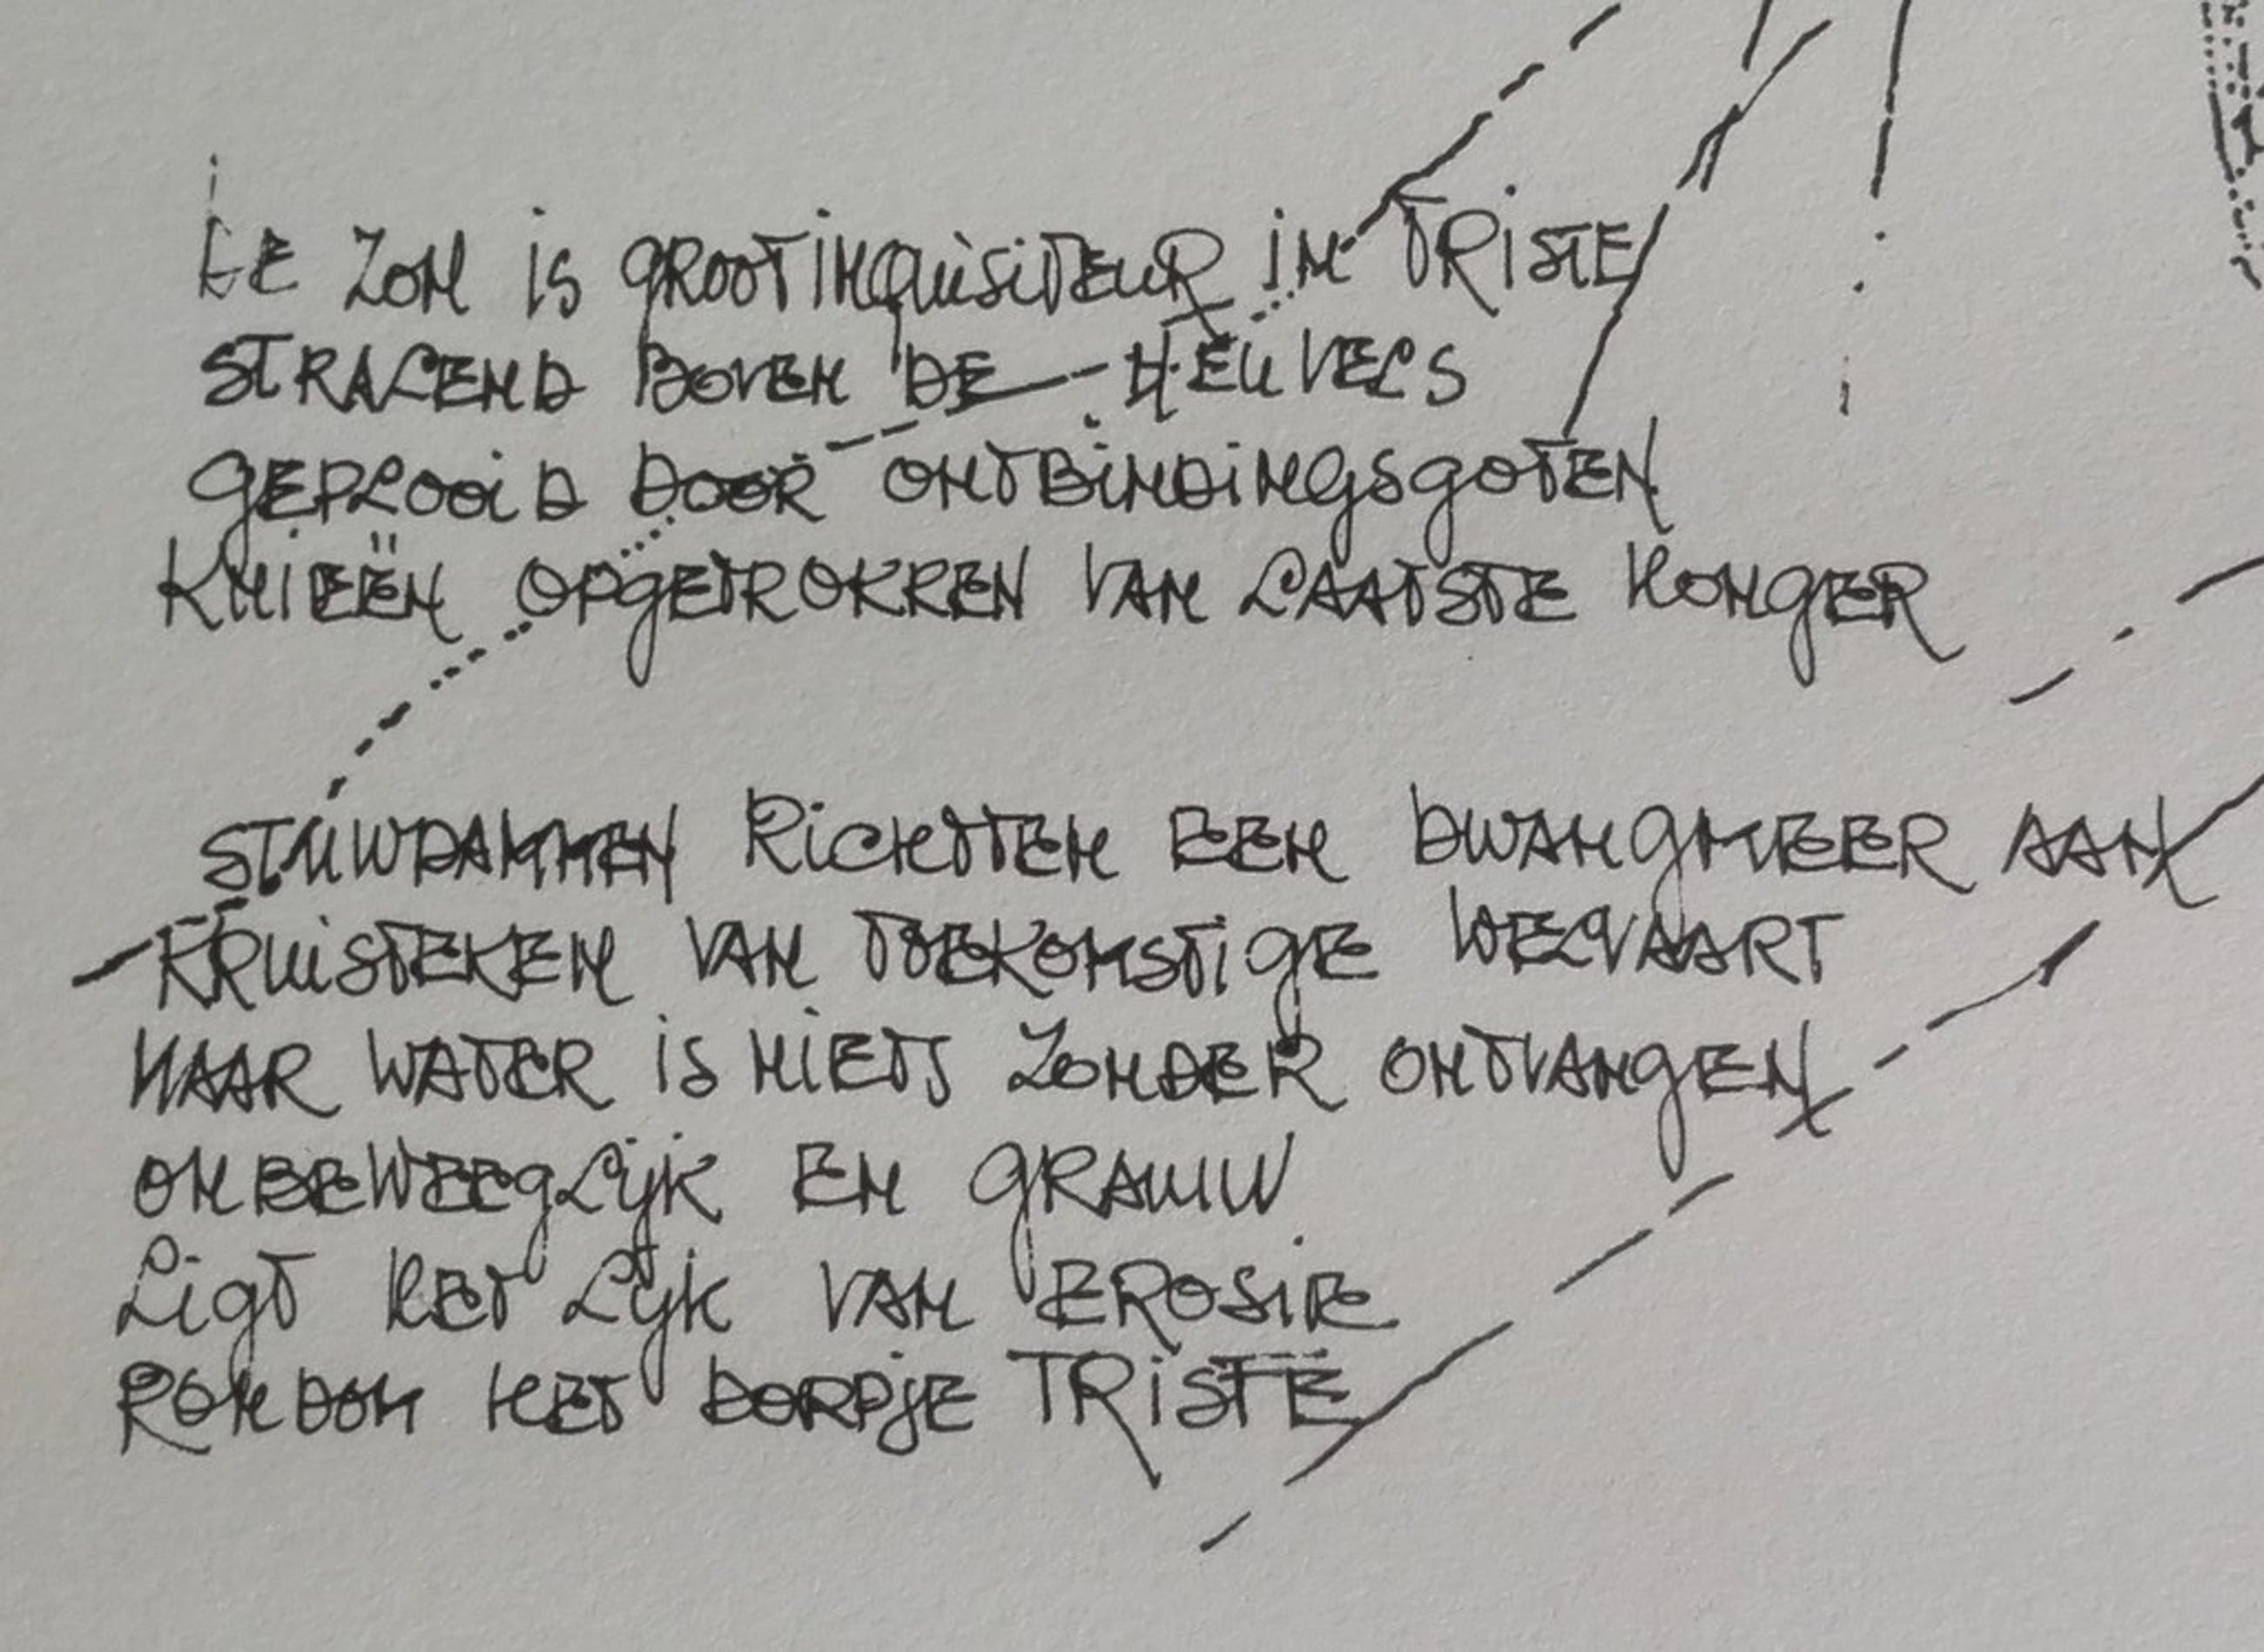 DE ZON IS GROOTINQUISITEUR IN TRISTE
STRALEND BOVEN DE HEUVELS
GEPLOOID DOOR ONTBINDINGSGOTEN
KNIEËN OPGETROKKEN VAN LAATSTE HONGER

STUWDAMMEN RICHTTEN EEN DWANGMEER AAN
KRUISTEKEN VAN TOEKOMSTIGE WELVAART
MAAR WATER IS NIETS ZONDER ONTVANGEN
ONBEWEEGLIJK EN GRAUW
LIGT HET LIJK VAN EROSIE
RONDOM HET DORPJE TRISTE